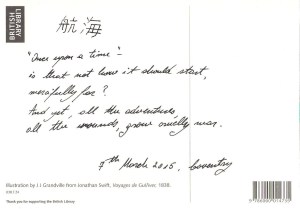 LIBRARY
BRITISH
航海
"Once upon a time" –
is that not how it should start,
mercifully far?
And yet, all the adventures,
all the wounds, grow cruelly
7th March 2015, Coventry
Illustration by J J Grandville from Jonathan Swift, Voyages de Gulliver, 1838.
Thank you for supporting the British Library